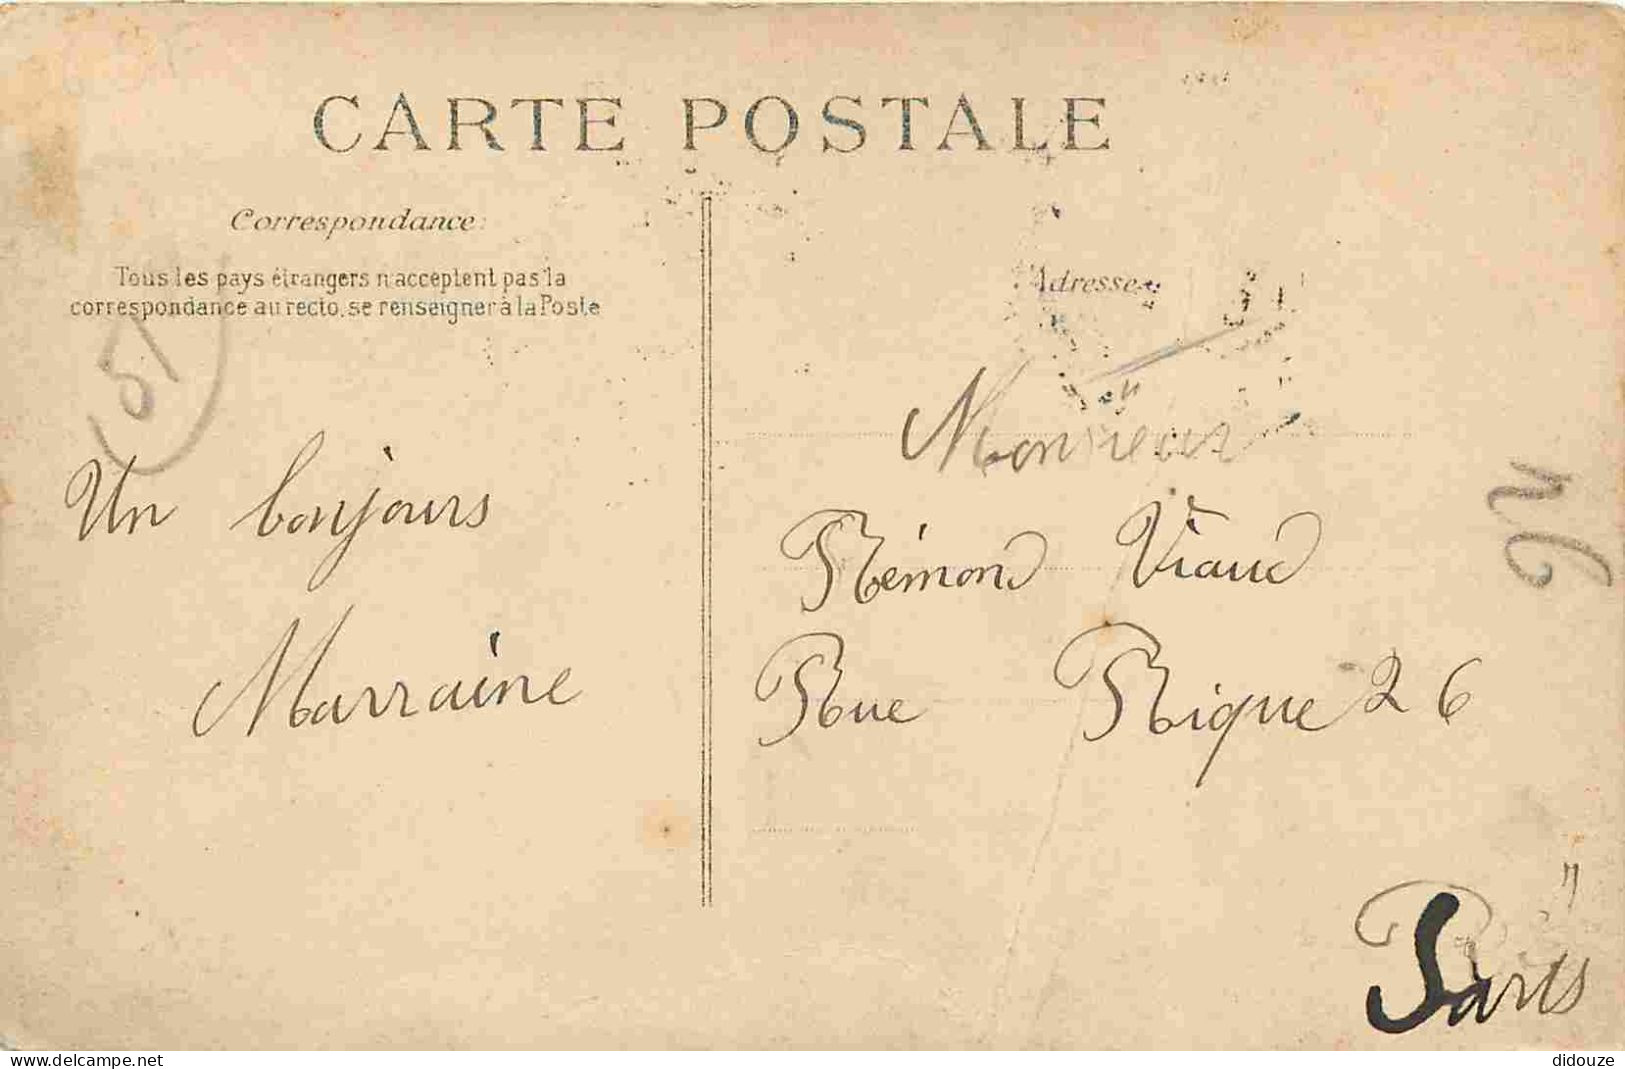 CARTE POSTALE
Correspondance:
Tous les pays étrangers n'acceptent pas la
correspondance au recto, se renseigner à la Poste
51
Un bonjours
Marraine
Adresse
Monsieur
Rémond Viaud
Rue Rique 26
Paris
www.delcampe.net
didouze